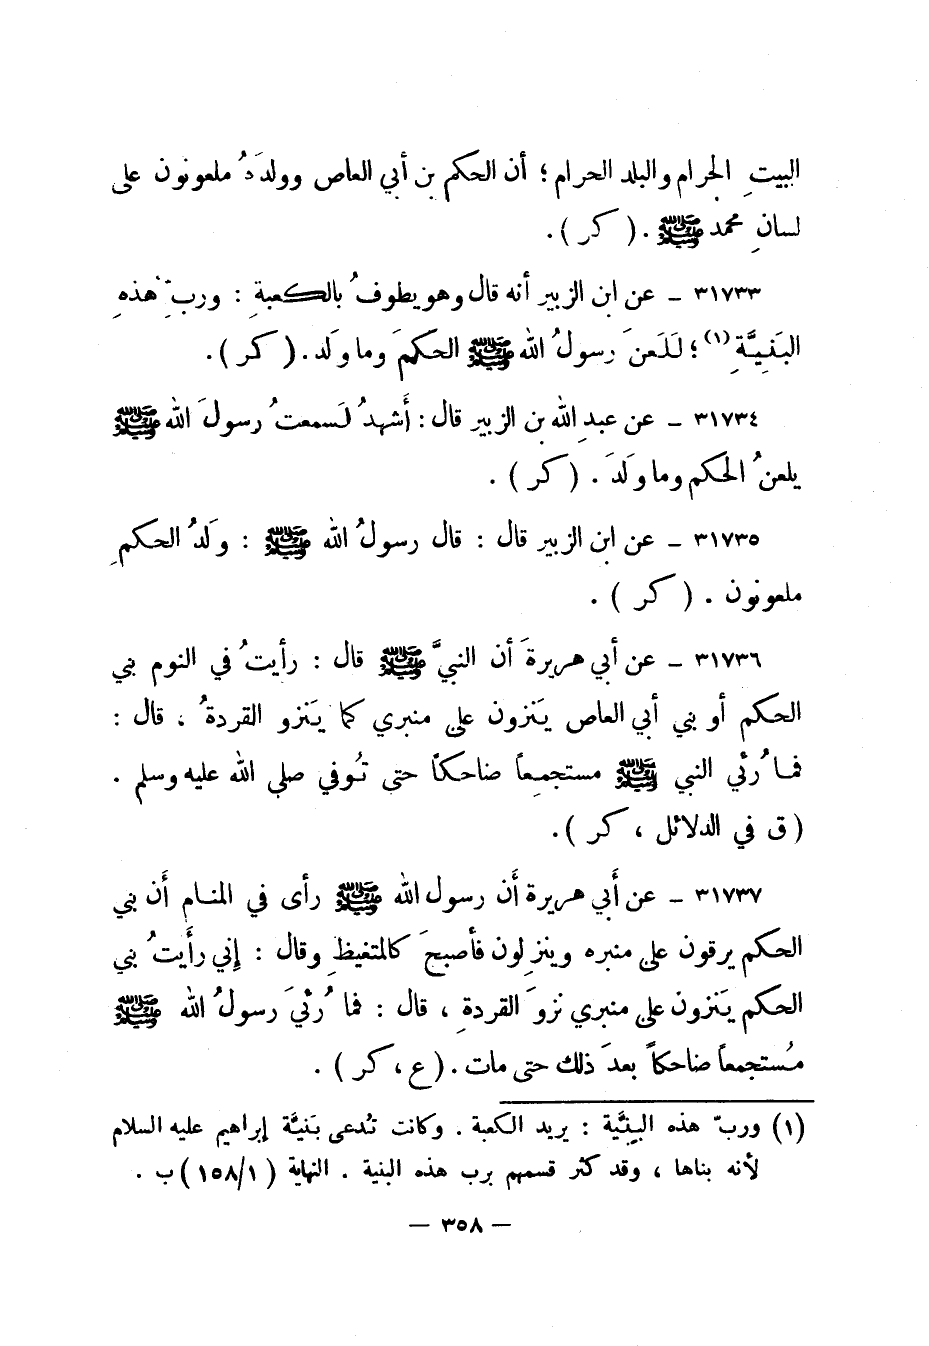 البيتِ الحرام والبلد الحرام ؛ أن الحكم بن أبي العاص وولدَهُ ملعونون على
لسانِ محمدٍ ﷺ . ( كر ) .
٣١٧٣٣ ـ عن ابن الزبير أنه قال وهو يطوفُ بالكعبةِ : وربِّ هذهِ
البَنِيَّةِ(١) ؛ لَلَعنَ رسولُ الله ﷺ الحكمَ وما ولَد . ( كر ) .
٣١٧٣٤ ـ عن عبدِ الله بن الزبير قال : أَشهدُ لَسمعتُ رسولَ الله ﷺ
يلعنُ الحكم وما ولَدَ . ( كر ) .
٣١٧٣٥ ـ عن ابن الزبير قال : قال رسولُ الله ﷺ : ولَدُ الحكمِ
ملعونون . ( كر ) .
٣١٧٣٦ ـ عن أبي هريرةَ أن النبيَّ ﷺ قال : رأيتُ في النوم بني
الحكم أو بني أبي العاص يَنزون على منبري كما يَنزو القردةُ ، قال :
فما رُئي النبي ﷺ مستجمعاً ضاحكاً حتى تُوفي صلى الله عليه وسلم .
( ق في الدلائل ، كر ) .
٣١٧٣٧ ـ عن أَبي هريرة أَن رسول الله ﷺ رأى في المنام أَن بني
الحكم يرقون على منبره وينزلون فأصبحَ كالمتغيظِ وقال : إِني رأَيتُ بني
الحكم يَنزون على منبري نزوَ القردةِ ، قال : فما رُئيَ رسولُ الله ﷺ
مُستجمعاً ضاحكاً بعدَ ذلك حتى مات . ( ع ، كر ) .
(١) وربّ هذه البنِيَّة : يريد الكعبة . وكانت تُدعى بَنيَّة إبراهيم عليه السلام
لأنه بناها ، وقد كثر قسمهم برب هذه البنية . النهاية ( ١/١٥٨ ) ب .
— ٣٥٨ —